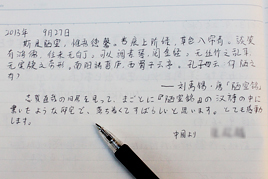 2013年 9月27日
斯是陋室,惟吾德馨。苔痕上阶绿,草色入帘青。谈笑
有鸿儒,往来无白丁。可以调素琴,阅金经。无丝竹之乱耳,
无案牍之劳形。南阳诸葛庐,西蜀子云亭。孔子云:何陋之
有?
——刘禹锡·唐《陋室铭》
の を見って、まことに『陋室銘』の漢詩の中に
書いたような所で、落ち着くてすばらしいと思います。とても感動
します。
中国より